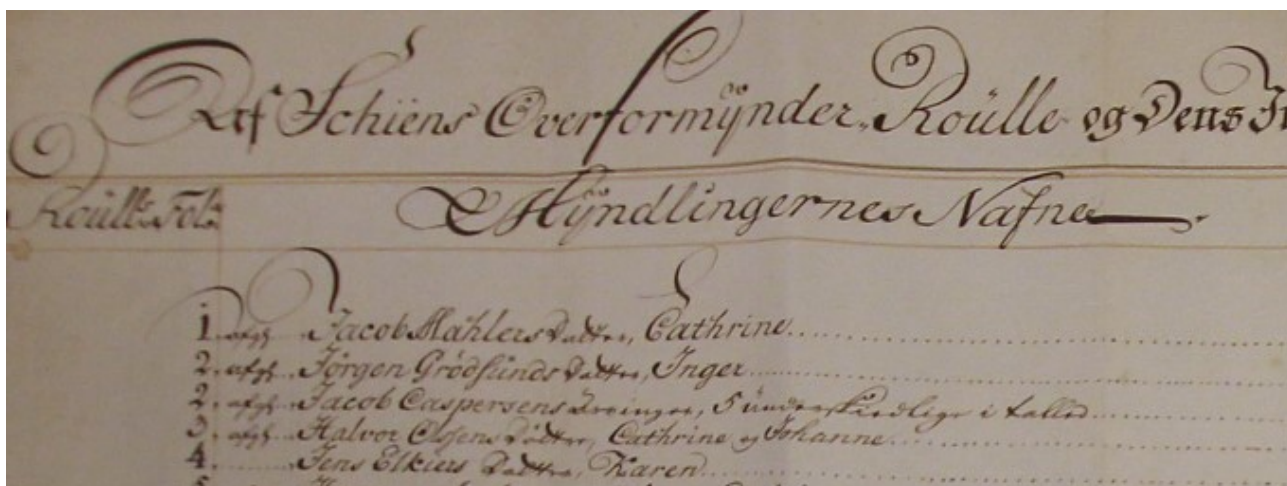 Af Schiens Overformÿnder, Roülle og Dens
Roülle Fol:
Mÿndlingernes Nafne
1. afg: Jacob Mahlers Datter, Cathrine
2. afg: Jørgen Grødsunds Datter, Inger
2. afg: Jacob Caspersens Arvinger, 5 ünderskiedlige i tallet
3. afg: Halvor Olsens Døttre, Cathrine og Johanne
4. Jens Elkiers Datter, Karen